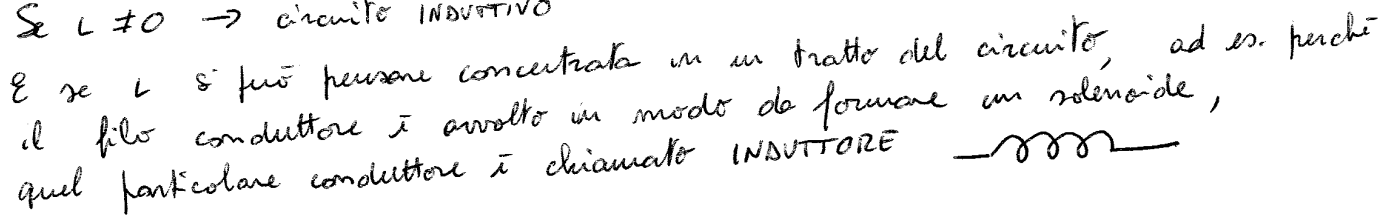 Se L ≠ 0 → circuito INDUTTIVO
E se L si può pensare concentrata in un tratto del circuito, ad es. perché
il filo conduttore è avvolto in modo da formare un solenoide,
quel particolare conduttore è chiamato INDUTTORE